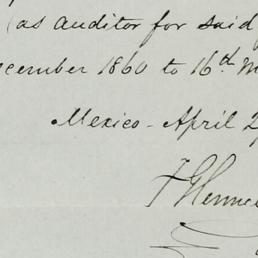 (as auditor for said
December 1860 to 16th M
Mexico - April 2